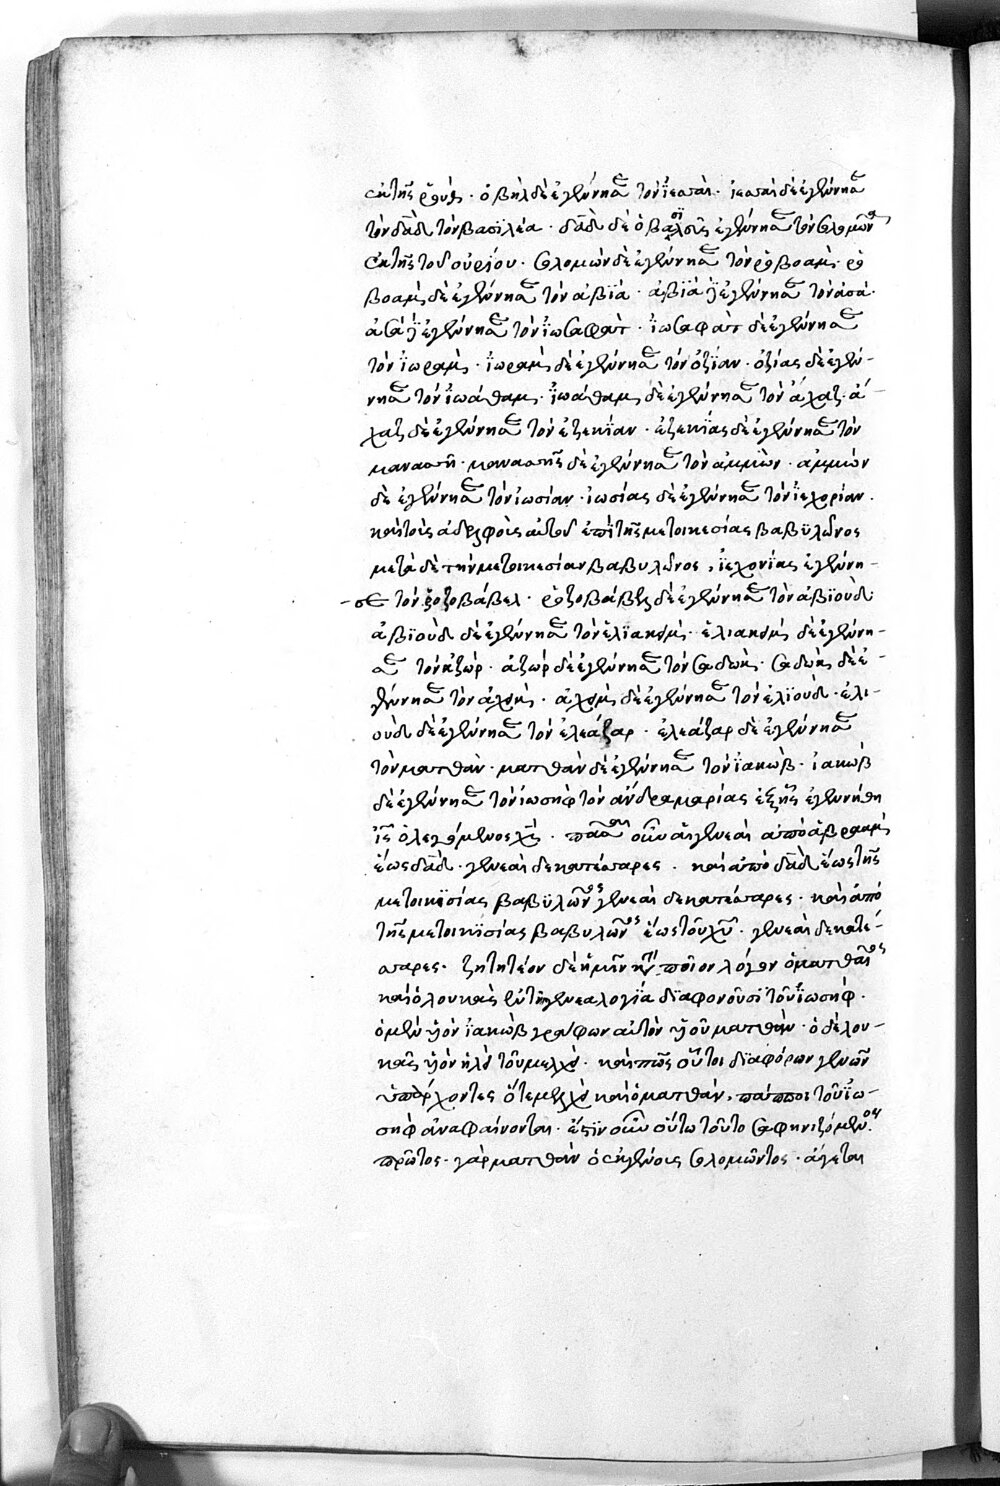 ἐκ τῆς ῥούθ · ὁ βὴλ δὲ ἐγέννησε τὸν ἰεσσαί · ἰεσσαὶ δὲ ἐγέννησε
τὸν δᾱδ τὸν βασϊλέα · δᾱδ δὲ ὁ βασϊλεὺς ἐγέννησε τὸν σολομῶντα
ἐκ τῆς τοῦ οὐρίου · σολομὼν δὲ ἐγέννησε τὸν ῥοβοάμ · ῥο
βοὰμ δὲ ἐγέννησε τὸν ἀβϊά · ἀβϊὰ δὲ ἐγέννησε τὸν ἀσά ·
ἀσὰ δὲ ἐγέννησε τὸν ἰωσαφάτ · ἰωσαφὰτ δὲ ἐγέννησε
τὸν ἰωράμ · ἰωρὰμ δὲ ἐγέννησε τὸν ὀζίαν · ὀζίας δὲ ἐγέν-
νησε τὸν ἰωάθαμ · ἰωάθαμ δὲ ἐγέννησε τὸν ἄχαζ · ἄ-
χαζ δὲ ἐγέννησε τὸν ἐζεκίαν · ἐζεκίας δὲ ἐγέννησε τὸν
μανασσῆ · μανασσῆς δὲ ἐγέννησε τὸν ἀμμών · ἀμμὼν
δὲ ἐγέννησε τὸν ἰωσίαν · ἰωσίας δὲ ἐγέννησε τὸν ἰεχονίαν ·
καὶ τοὺς ἀδελφοὺς αὐτοῦ ἐπὶ τῆς μετοικεσίας βαβϋλῶνος
μετὰ δὲ τὴν μετοικεσίαν βαβυλῶνος , ἰεχονίας ἐγέννη-
-σε τὸν ζοροβάβελ · ζοροβάβελ δὲ ἐγέννησε τὸν ἀβϊούδ
ἀβϊοὺδ δὲ ἐγέννησε τὸν ἐλϊακείμ · ἐλιακεὶμ δὲ ἐγέννη-
σε τὸν ἀζώρ · ἀζὼρ δὲ ἐγέννησε τὸν σαδώκ · σαδὼκ δὲ ἐ-
γέννησε τὸν ἀχείμ · ἀχεὶμ δὲ ἐγέννησε τὸν ἐλϊούδ · ἐλι-
οὺδ δὲ ἐγέννησε τὸν ἐλεάζαρ · ἐλεάζαρ δὲ ἐγέννησε
τὸν ματθάν · ματθὰν δὲ ἐγέννησε τὸν ἰακώβ · ἰακὼβ
δὲ ἐγέννησε τὸν ἰωσὴφ τὸν ἄνδρα μαρίας ἐξ ἧς ἐγεννήθη
ἰς̄ ὁ λεγόμενος χς̄ · πᾶσαι οὖν αἱ γενεαὶ ἀπὸ ἀβραὰμ
ἕως δᾱδ · γενεαὶ δεκατέσσαρες · καὶ ἀπὸ δᾱδ ἕως τῆς
μετοικεσίας βαβϋλῶνος γενεαὶ δεκατέσσαρες · καὶ ἀπὸ
τῆς μετοικϊσίας βαβυλῶνος ἕως τοῦ χῡ · γενεαὶ δεκατέ-
σσαρες · ζητητέον δὲ ἡμῖν κατὰ ποῖον λόγον ὁ ματθαῖος
καὶ ὁ λουκᾶς ἐν τῆ γενεαλογϊα δϊαφονοῦσϊ τοῦ ἰωσήφ ·
ὁ μὲν υἱὸν ἰακὼβ γράφων αὐτὸν υἱοῦ ματθάν · ὁ δὲ λου-
κᾶς υἱὸν ἡλεὶ τοῦ μελχεί · καὶ πῶς οὗτοι δϊαφόρων γενῶν
ὑπάρχοντες ὅ τε μελχεὶ καὶ ὁ ματθάν , πάπποι τοῦ ἰω-
σὴφ ἀναφαίνονται · ἔστϊν οὖν οὕτω τοῦτο σαφηνιζόμενον ·
πρῶτος · γὰρ ματθὰν ὁ ἐκ γένους σολομῶντος · ἄγεται